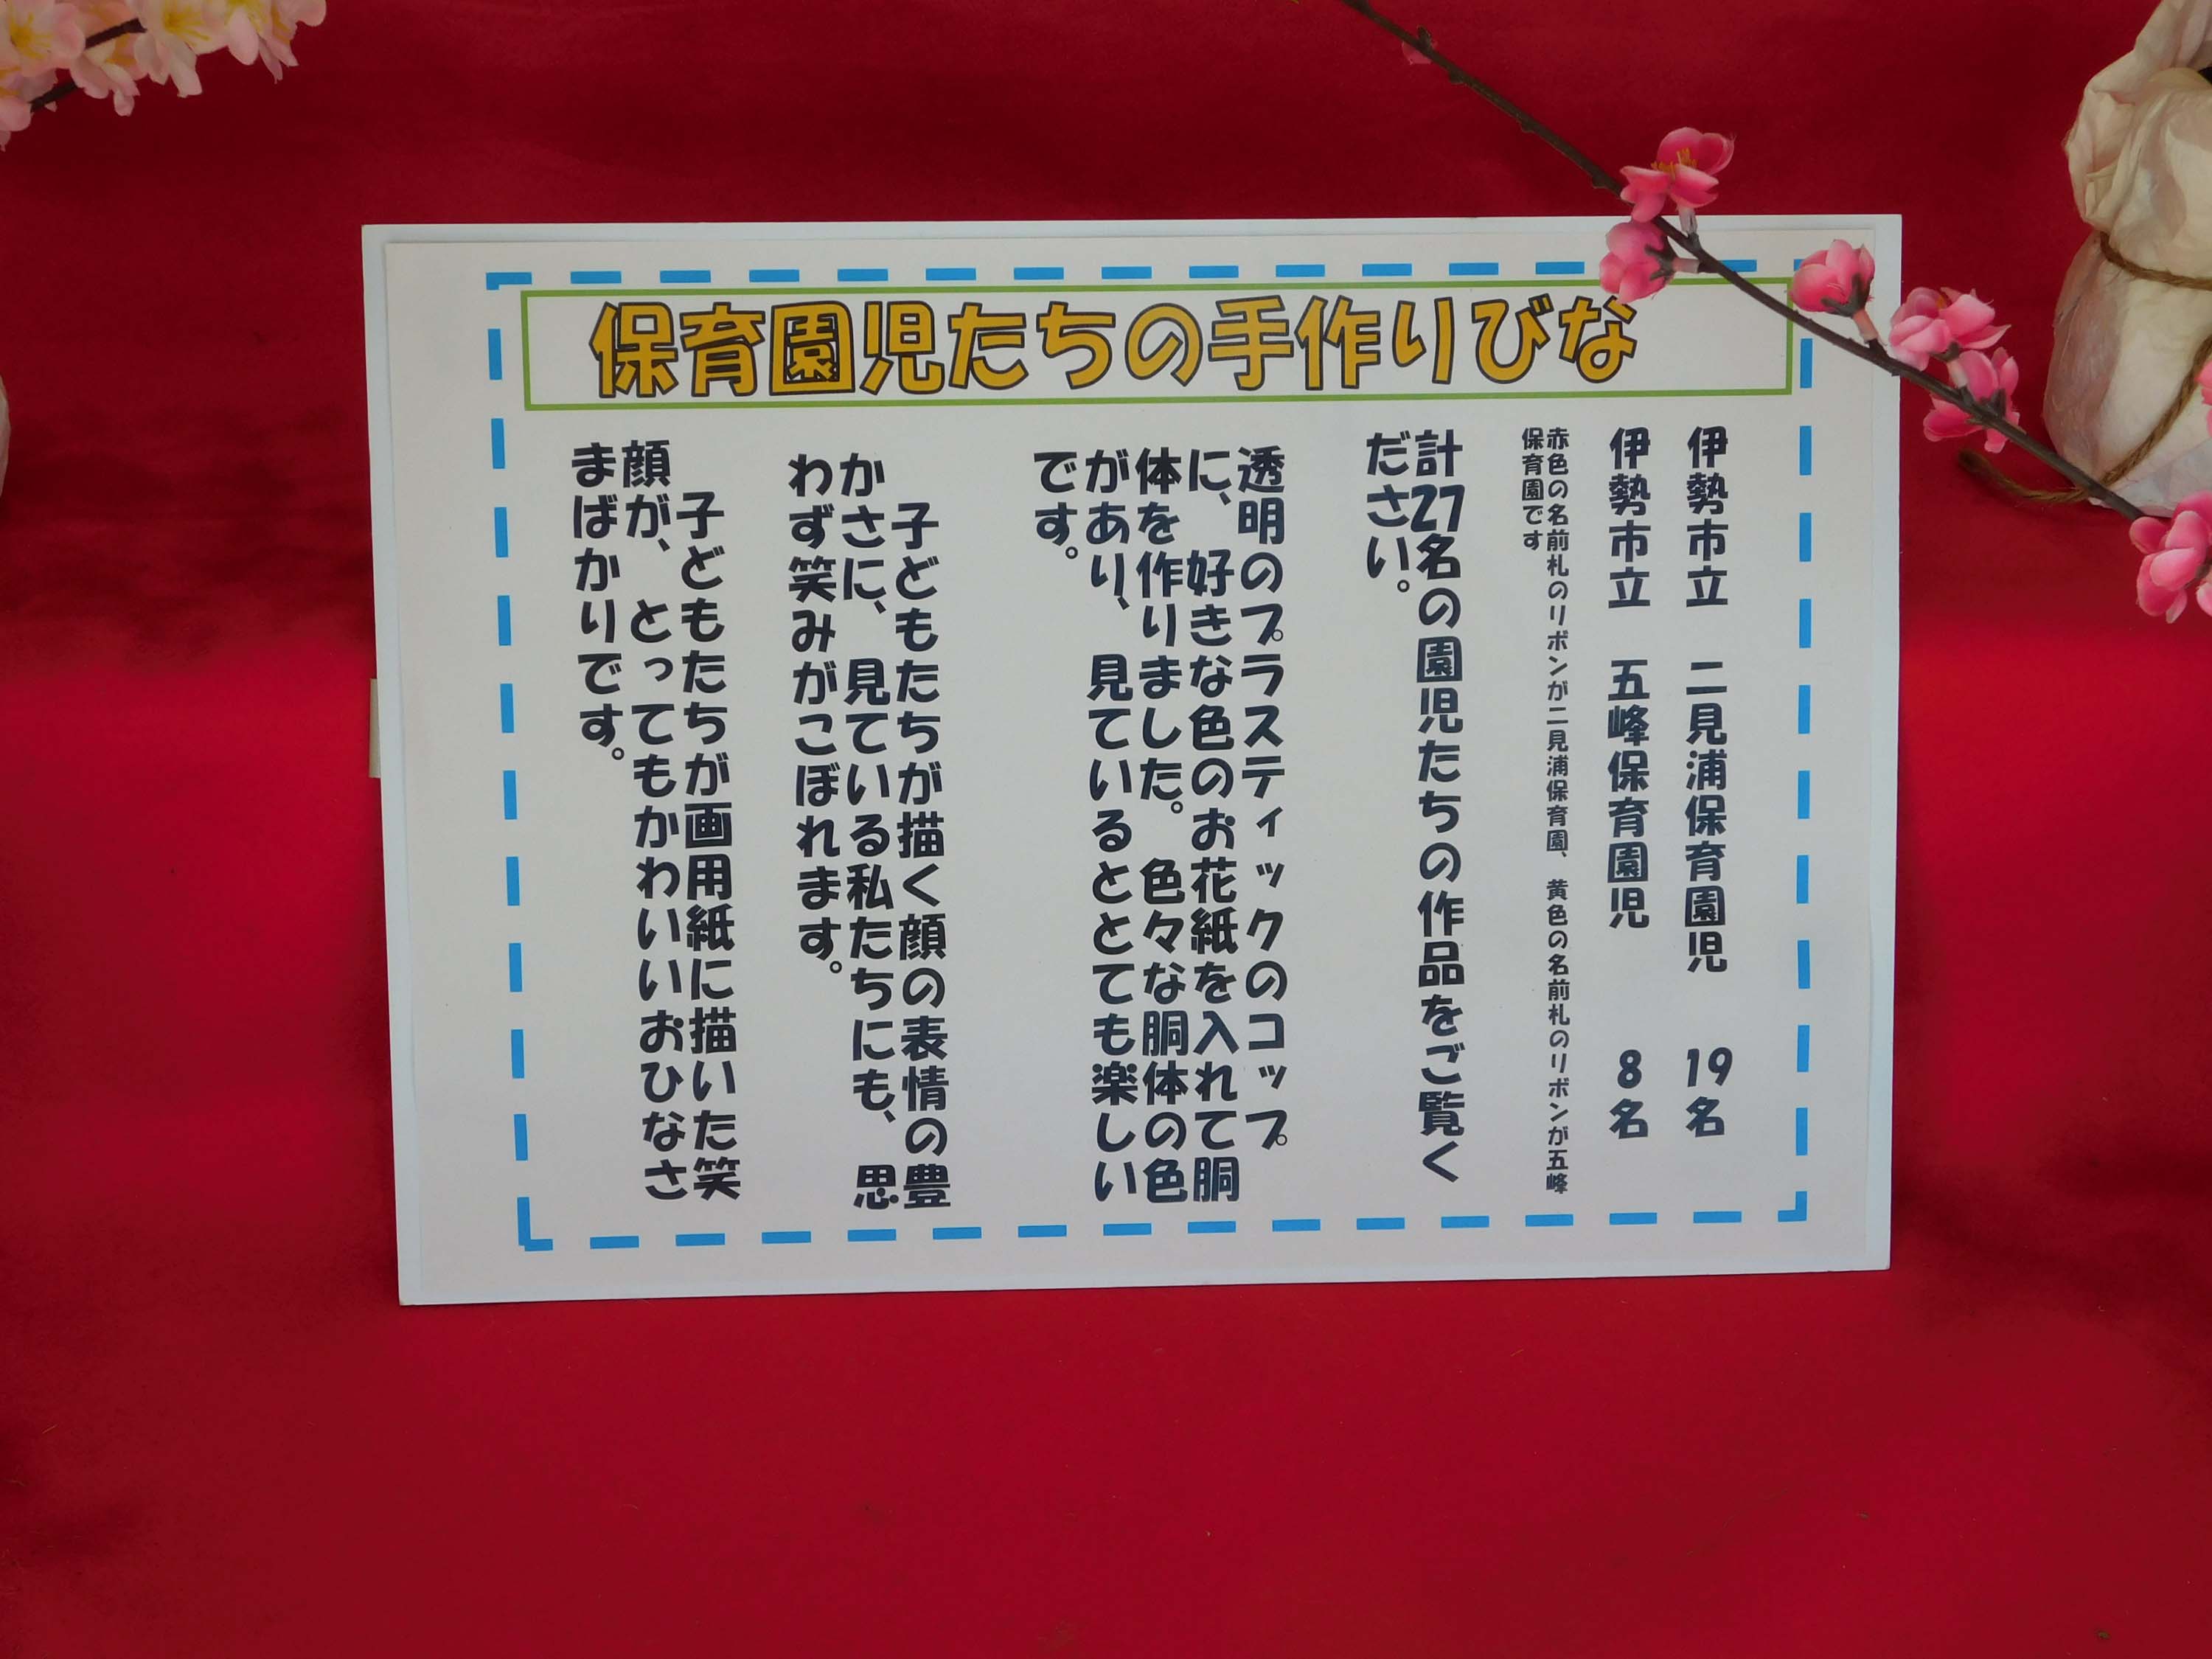 保育園児たちの手作りびな
伊勢市立　二見浦保育園児　19名
伊勢市立　五峰保育園児　8名
赤色の名前札のリボンが二見浦保育園、黄色の名前札のリボンが五峰
保育園です
計27名の園児たちの作品をご覧く
ださい。
透明のプラスティックのコップ
に、好きな色のお花紙を入れて胴
体を作りました。色々な胴体の色
があり、見ているととても楽しい
です。
子どもたちが描く顔の表情の豊
かさに、見ている私たちにも、思
わず笑みがこぼれます。
子どもたちが画用紙に描いた笑
顔が、とってもかわいいおひなさ
まばかりです。